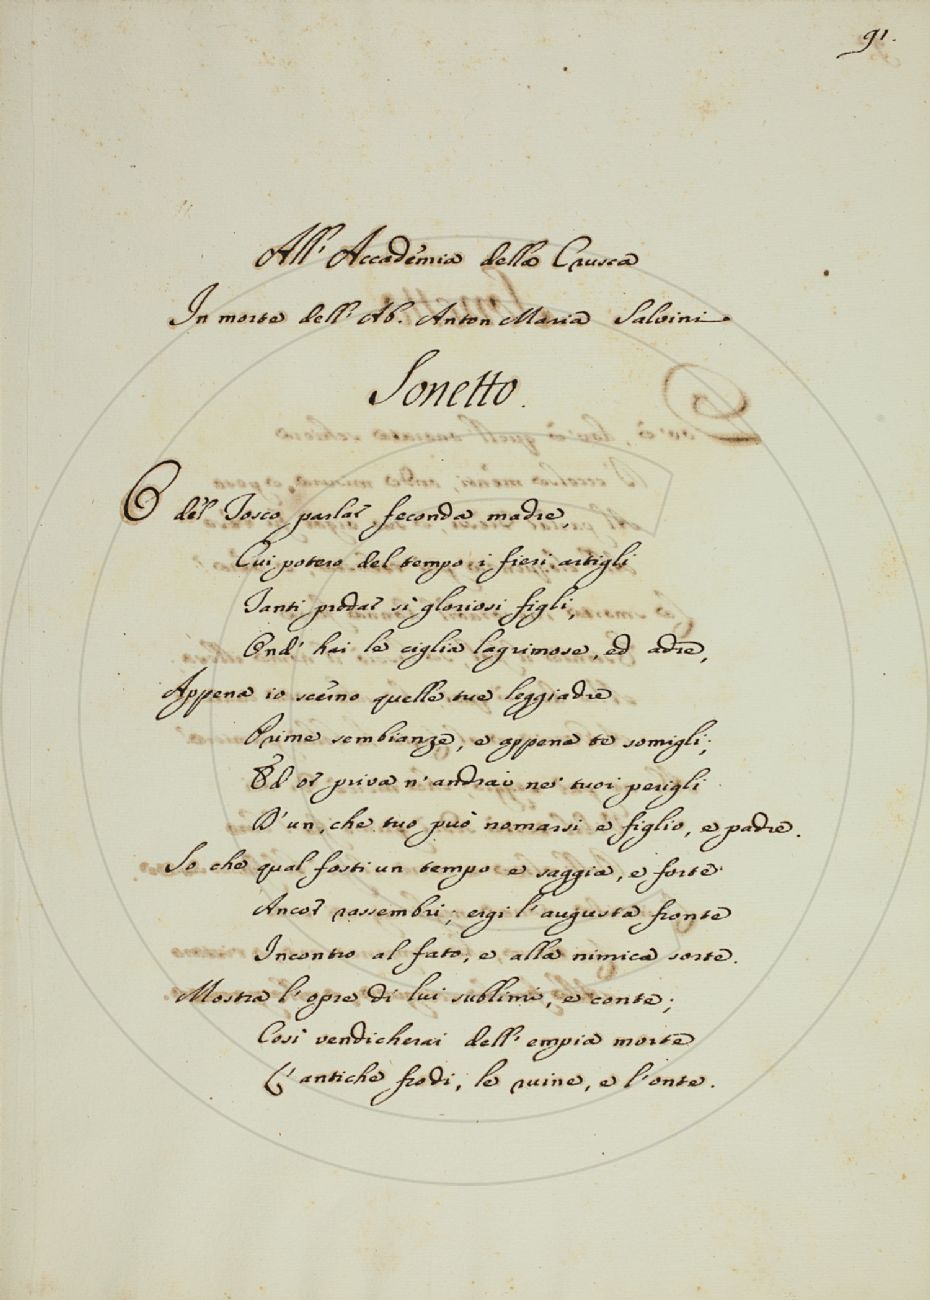 91.
All' Accademia della Crusca
In morte dell' Ab. Anton Maria Salvini
Sonetto.
O del Tosco parlar feconda madre,
Cui potero del tempo i fieri artigli
Tanti predar sì gloriosi figli,
Ond' hai le ciglia lagrimose, ed adre,
Appena io scerno quelle tue leggiadre
Prime sembianze, e appena te somigli;
Ed or priva n' andrai ne' tuoi perigli
D' un, che tuo può nomarsi e figlio, e padre.
So che qual fosti un tempo e saggia, e forte
Ancor rassembri; ergi l' augusta fronte
Incontro al fato, e alla nimica sorte.
Mostra l' opre di lui sublimi, e conte;
Così vendicherai dell' empia morte
L' antiche frodi, le ruine, e l' onte.